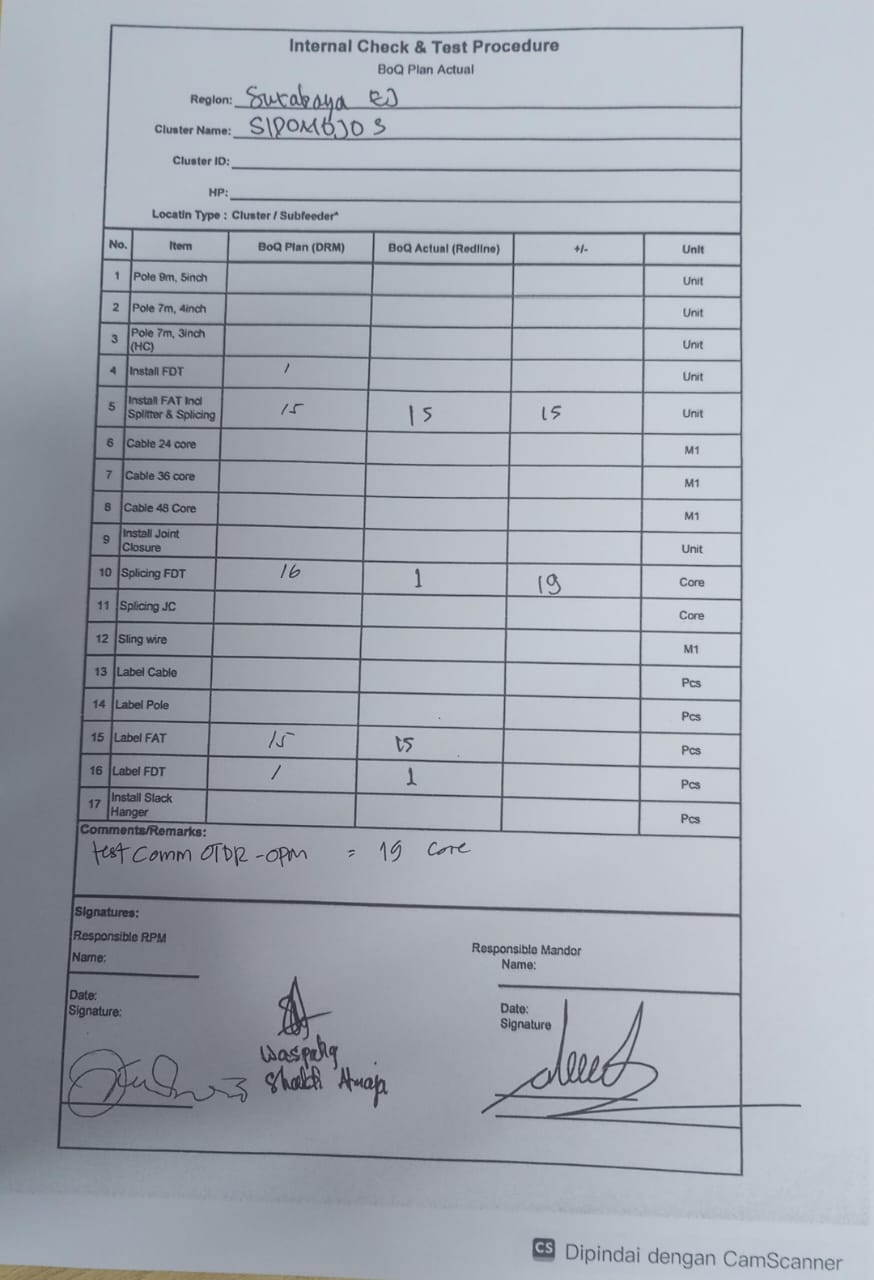 Internal Check & Test Procedure
BoQ Plan Actual
Region: Surabaya
Cluster Name: SIDOMOJO 3
Cluster ID:
HP:
Locatin Type : Cluster / Subfeeder*
No. Item BoQ Plan (DRM) BoQ Actual (Redline) +/- Unit
1 Pole 9m, 5inch Unit
2 Pole 7m, 4inch Unit
3 Pole 7m, 3inch (HC) Unit
4 Install FDT 1 Unit
5 Install FAT Incl Splitter & Splicing 15 15 15 Unit
6 Cable 24 core M1
7 Cable 36 core M1
8 Cable 48 Core M1
9 Install Joint Closure Unit
10 Splicing FDT 16 1 19 Core
11 Splicing JC Core
12 Sling wire M1
13 Label Cable Pcs
14 Label Pole Pcs
15 Label FAT 15 15 Pcs
16 Label FDT 1 1 Pcs
17 Install Slack Hanger Pcs
Comments/Remarks:
test Comm OTDR - OPM = 19 Core
Signatures:
Responsible RPM
Name:
Responsible Mandor
Name:
Date:
Signature:
Date:
Signature
Waspang
CS Dipindai dengan CamScanner